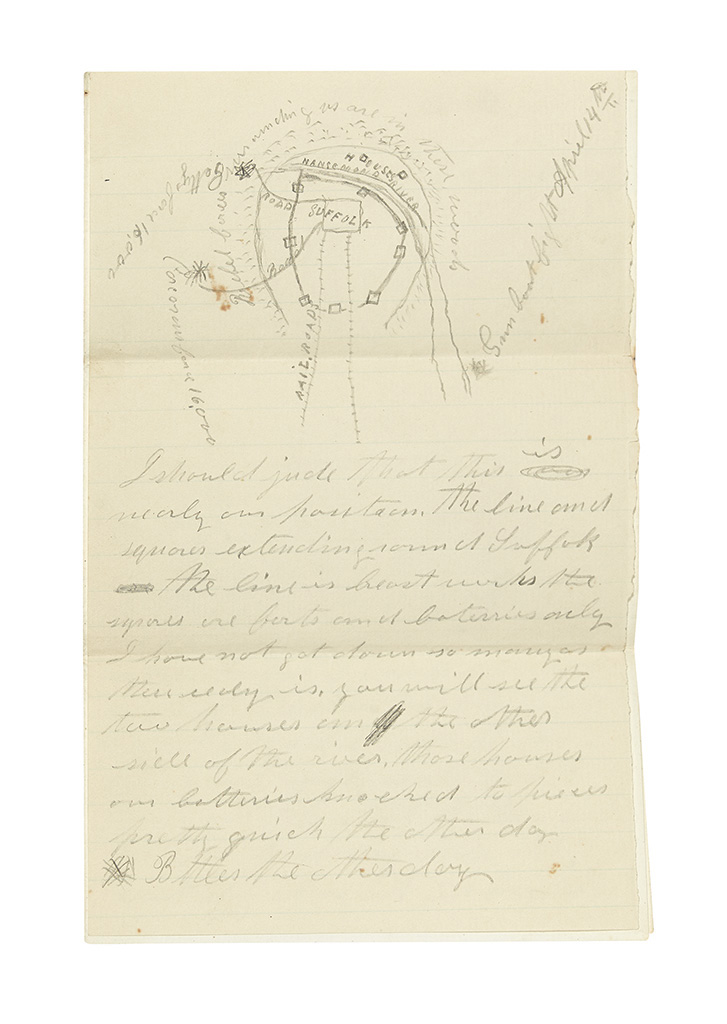 Rebel forces surrounding us are in these woods
HOUSES
NANSEMOND RIVER
ROAD
SUFFOLK
Road
RAIL ROAD
Gettys force 16,000
Corcorans force 16,000
Gun boat fight April 14th
I should jude that this is
nearly our position. The line and
squars extending round Suffolk
the line is breast works the
squars are forts and batteries only
I have not got down so many as
there realy is. you will see the
two houses on the other
side of the river, those houses
our batteries knocked to pieces
pretty quick the other day
Battles the other day